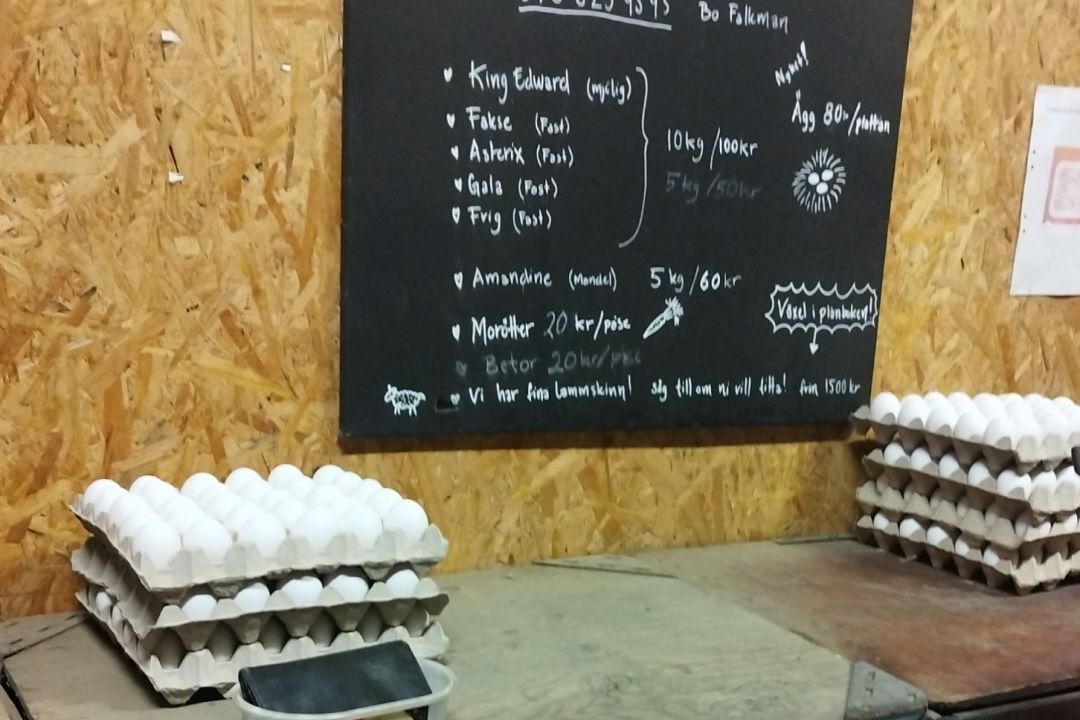 Bo Falkman
King Edward (mjölig)
Fakse (Fast)
Asterix (Fast)
Gala (Fast)
Frig (Fast)
10kg/100kr
5kg/50kr
Nyhet!
Ägg 80:-/plattan
Amandine (Mandel) 5kg/60kr
Morötter 20 kr/påse
Betor 20kr/påse
Växel i plånboken!
Vi har fina lammskinn! säg till om ni vill titta! från 1500kr